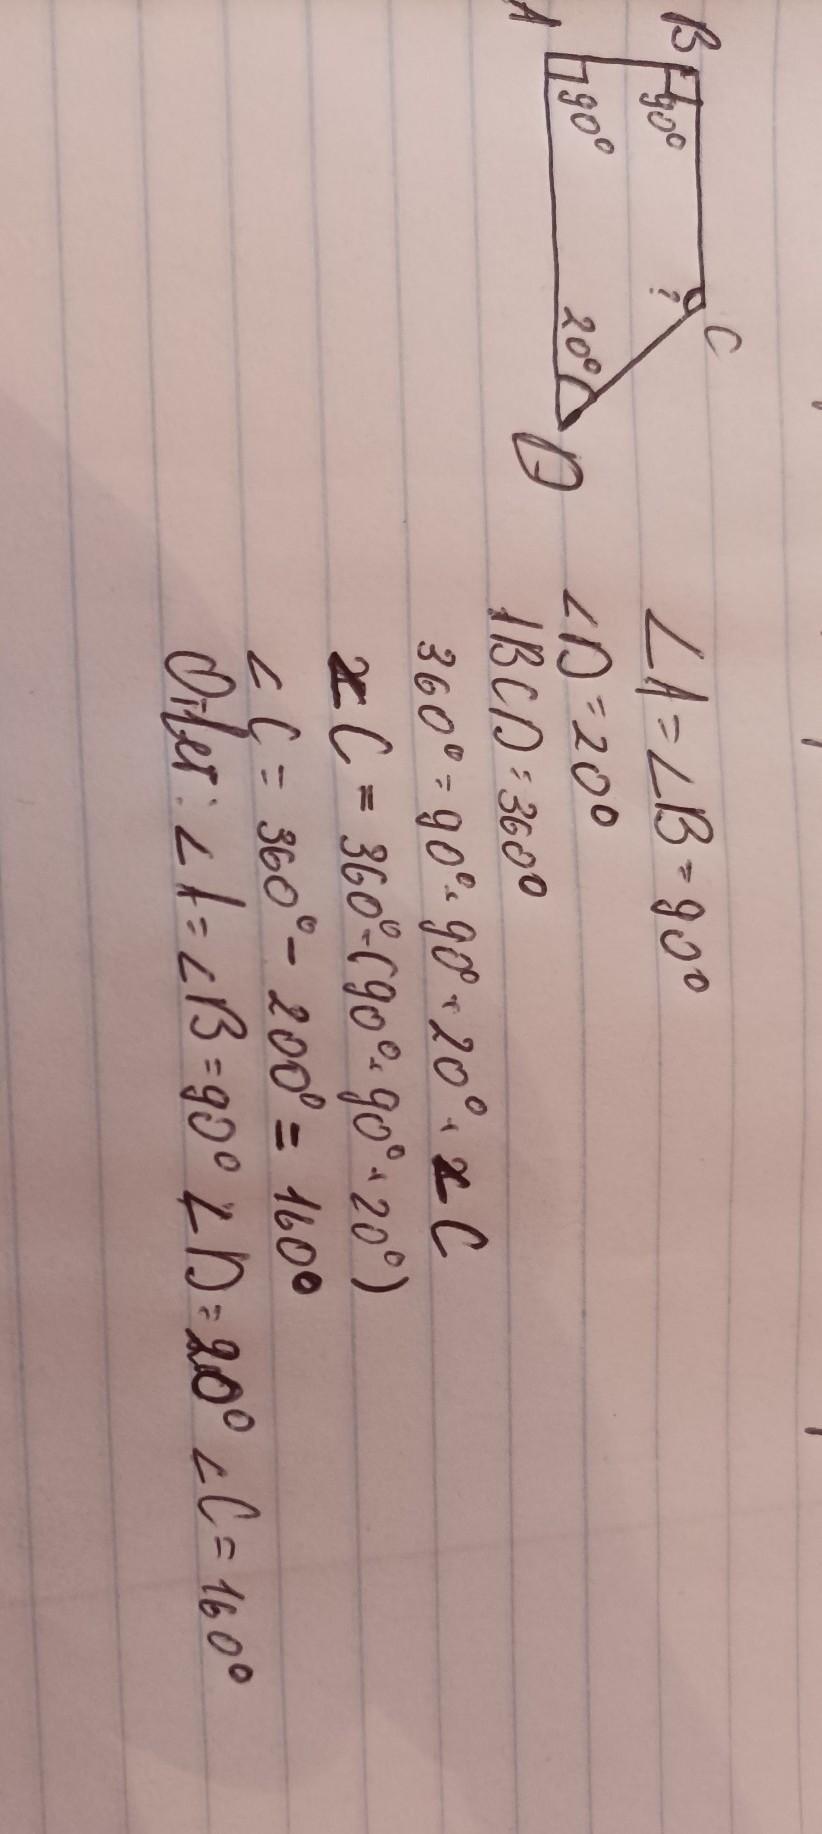 B
C
90°
?
90°
20°
A
D
∠A = ∠B = 90°
∠D = 20°
ABCD = 360°
360° = 90° + 90° + 20° + ∠C
∠C = 360° - (90° + 90° + 20°)
∠C = 360° - 200° = 160°
Ответ: ∠A = ∠B = 90° ∠D = 20° ∠C = 160°